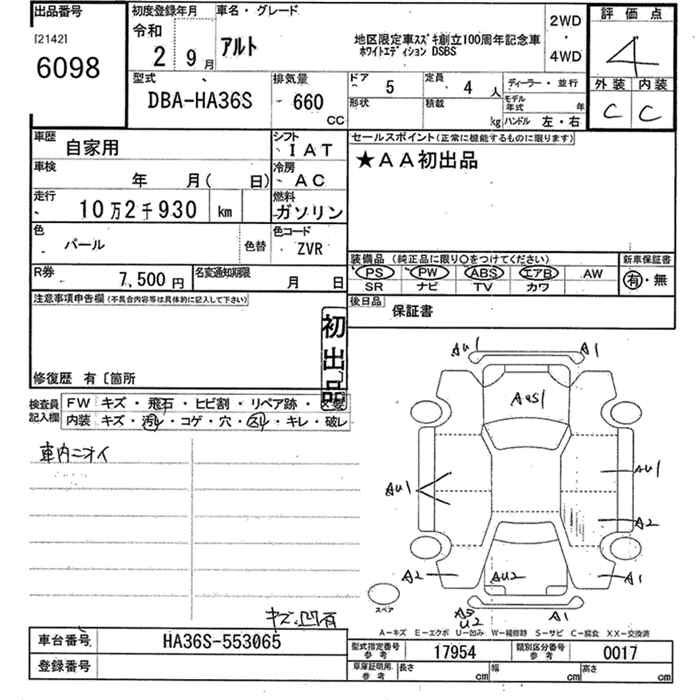 出品番号
[2142]
6098
初度登録年月
令和
2 9 月
車名・グレード
アルト
地区限定車スズキ創立100周年記念車
ホワイトエディション DSBS
2WD
・
4WD
評価点
4
外装 内装
C C
型式
DBA-HA36S
排気量
660
cc
ドア
5
定員
4 人
形状
積載
kg
ディーラー・並行
モデル年式 年
ハンドル 左・右
車歴
自家用
シフト
IAT
セールスポイント(正常に機能するものに限ります)
★AA初出品
車検
年 月( 日)
冷房
AC
走行
10万2千930 km
燃料
ガソリン
色
パール
色替
色コード
ZVR
装備品 (純正品に限り〇をつけてください)
PS PW ABS エアB AW
SR ナビ TV カワ
新車保証書
有・無
R券
7,500円
名変通知期限
月 日
後日品
保証書
注意事項申告欄(不具合内容等は具体的に記入して下さい)
初出品
修復歴 有 〔箇所
検査員記入欄
FW キズ・飛石・ヒビ割・リペア跡・
内装 キズ・汚レ・コゲ・穴・凹ミ・キレ・破レ
車内ニオイ
キズ凹有
AU1
A1
AUS1
AU1
AU1
A2
A2
AU2
A1
スペア
AS
U2
A1
A-キズ E-エクボ U-凹み W-補修跡 S-サビ C-腐食 XX-交換済
車台番号
HA36S-553065
登録番号
型式指定番号
参考
17954
類別区分番号
参考
0017
車庫証明用
参考
長さ cm
幅 cm
高さ cm